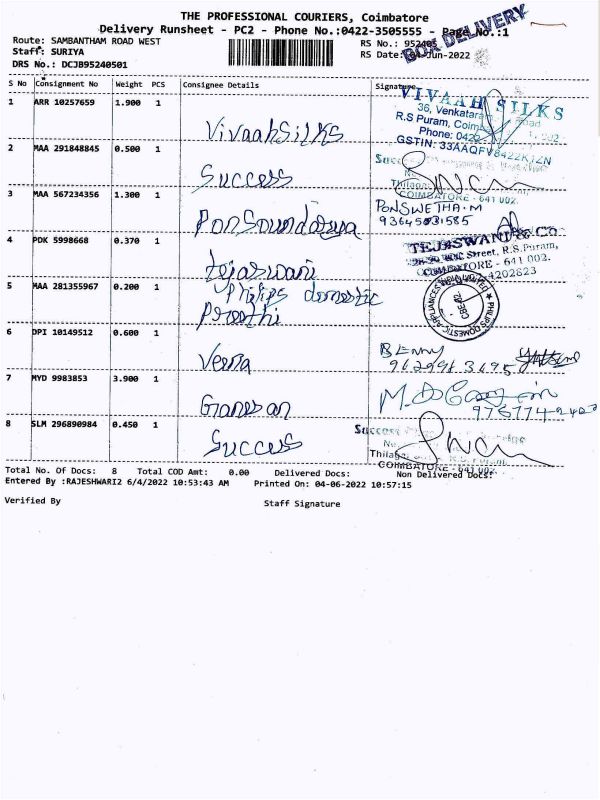 THE PROFESSIONAL COURIERS, Coimbatore
Delivery Runsheet - PC2 - Phone No.:0422-3505555 - Page No.:1
BOX DELIVERY
Route: SAMBANTHAM ROAD WEST
RS No.: 952405
Staff: SURIYA
RS Date: 04-Jun-2022
DRS No.: DCJB95240501
S No Consignment No Weight PCS Consignee Details Signature
1 ARR 10257659 1.900 1
VivaahSilks
VIVAAH SILKS
36,
R.S Puram,
Phone: 0422
GSTIN:
2 MAA 291848845 0.500 1
Success
COIMBATORE - 641 002.
3 MAA 567234356 1.300 1
PONSWETHA.M
4 PDK 5998668 0.370 1
tejaswani
TEJASWANI & Co
Street, R.S.Puram,
COIMBATORE - 641 002.
5 MAA 281355967 0.200 1
Philips domestic
Preethi
PHILIPS DOMESTIC APPLIANCES
6 DPI 10149512 0.600 1
Veena
BENNY
7 MYD 9983853 3.900 1
Ganesan
8 SLM 296890984 0.450 1
Success
Success
COIMBATORE - 641 002.
Total No. Of Docs: 8 Total COD Amt: 0.00 Delivered Docs: Non Delivered Docs:
Entered By :RAJESHWARI2 6/4/2022 10:53:43 AM Printed On: 04-06-2022 10:57:15
Verified By Staff Signature